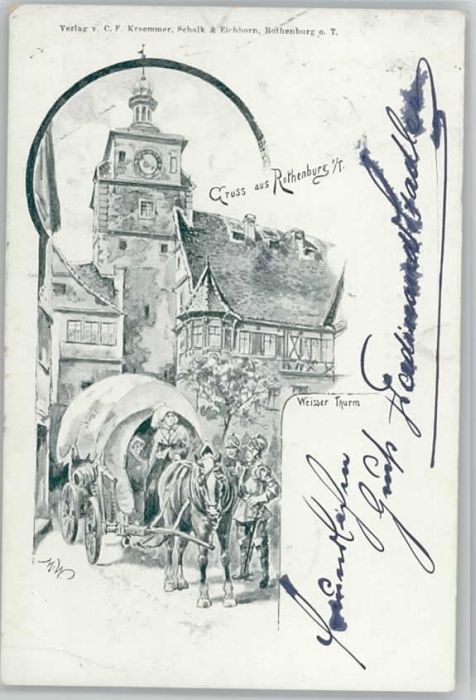 Verlag v. C. F. Kraemmer, Schalk & Eichhorn, Rothenburg o. T.
Gruss aus Rothenburg o/T.
Weisser Thurm
Gruß
Ferdinand